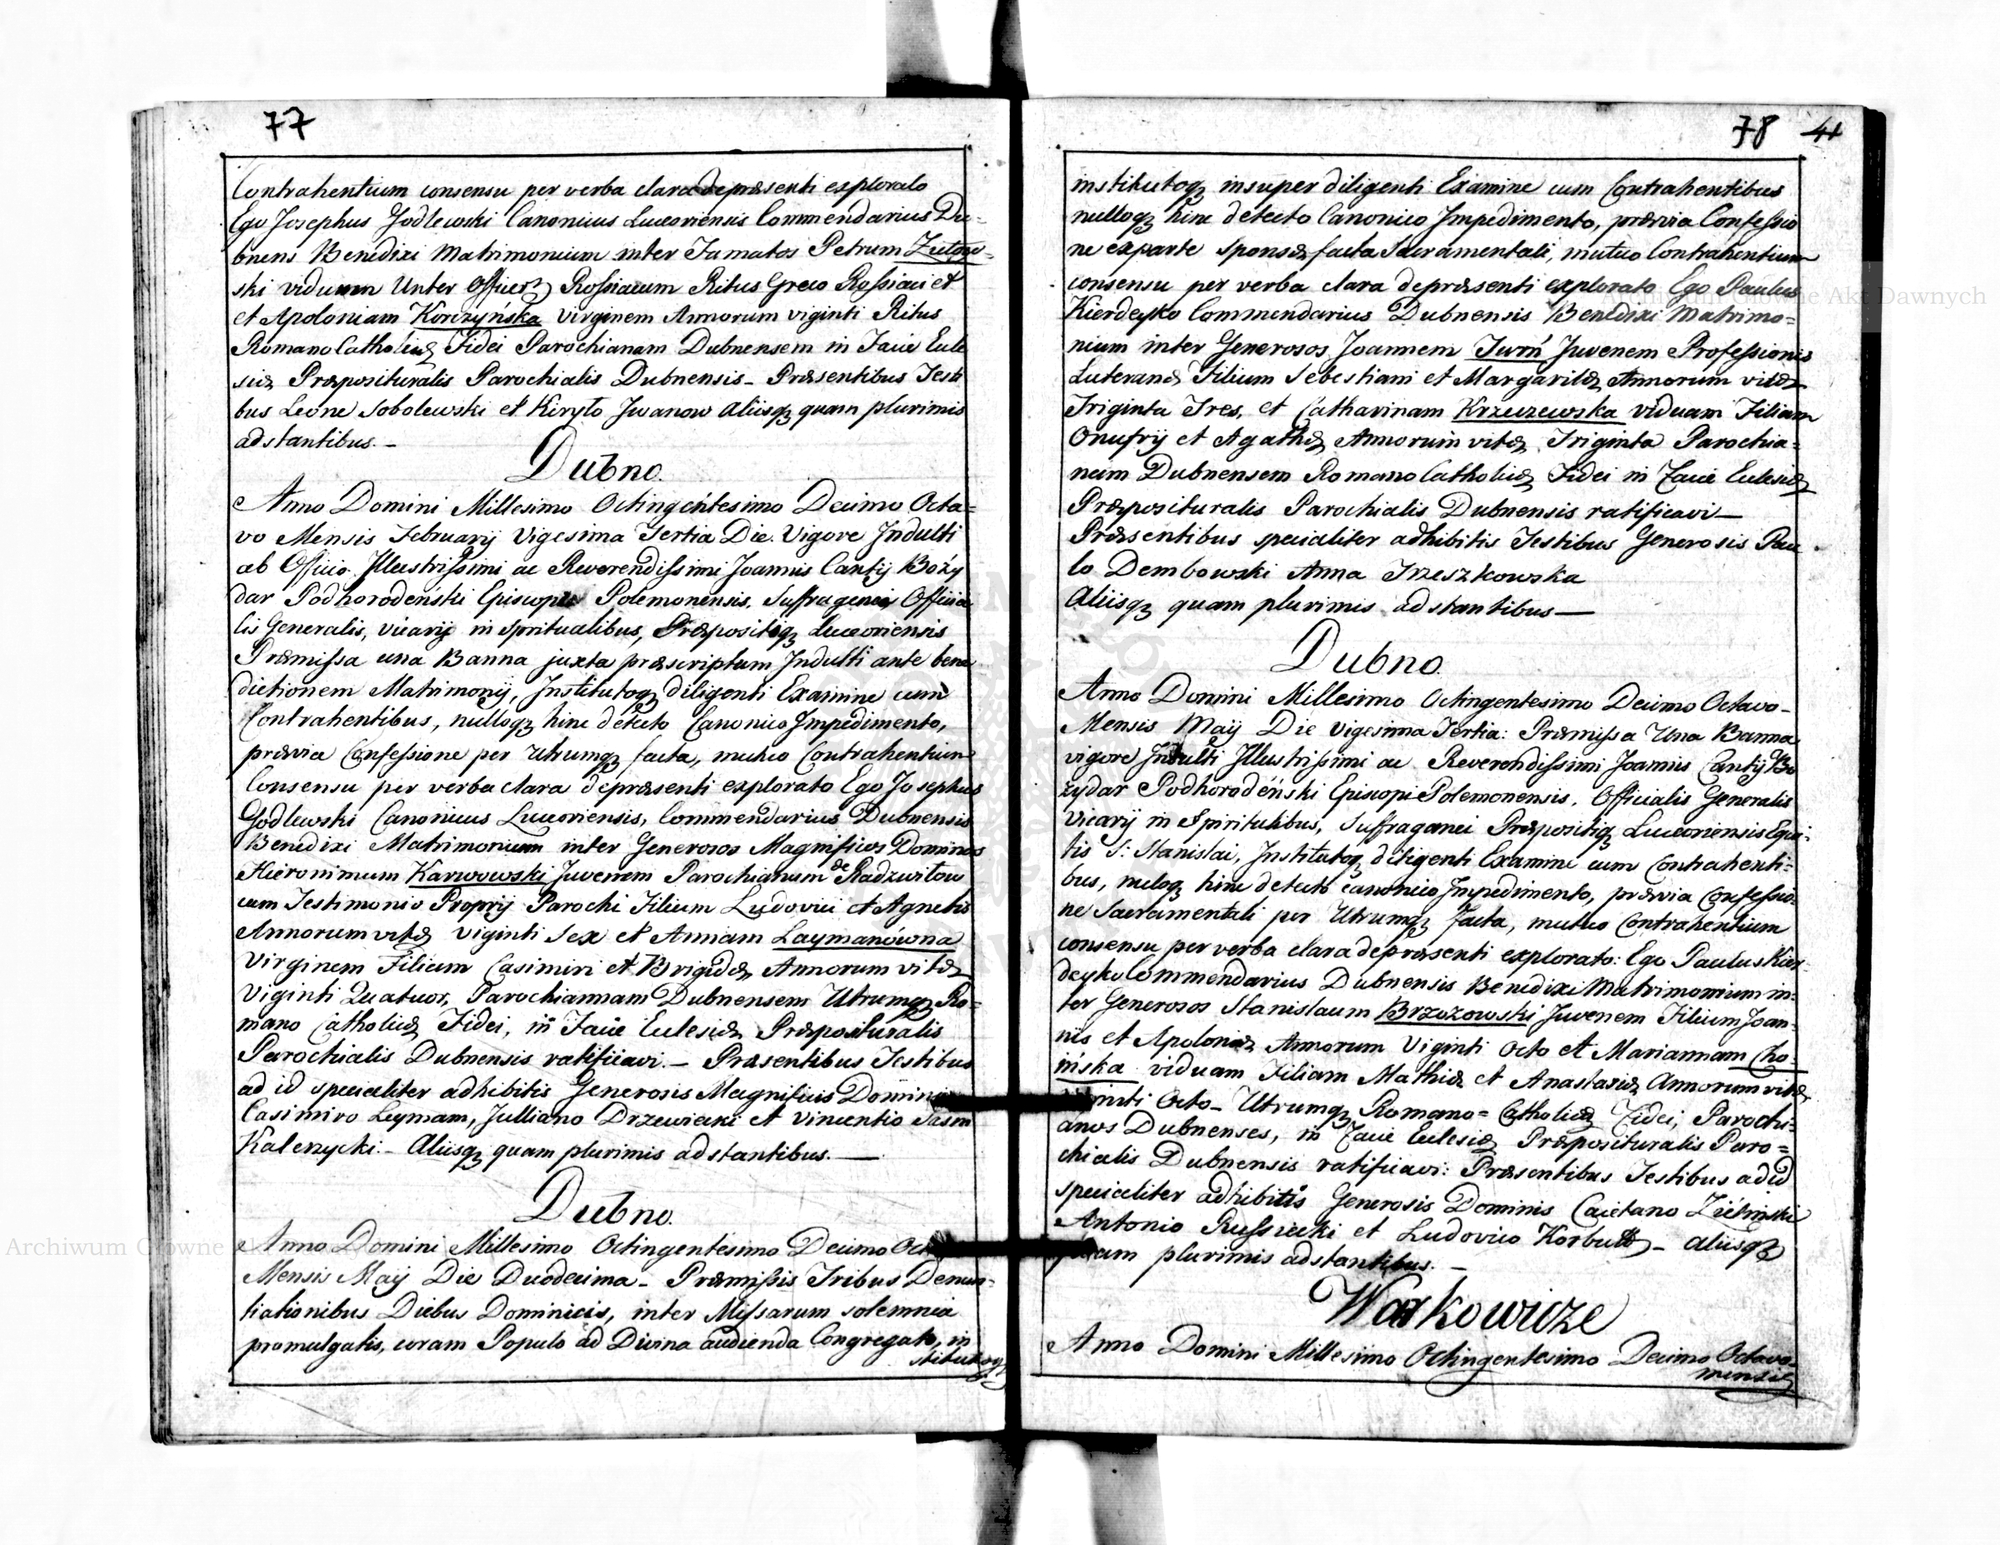 77
Contrahentium consensu per verba clara depræsenti explorato
Ego Josephus Jodlewski Canonicus Luceoriensis Commendarius Du-
bnens Benedixi Matrimonium inter Famatos Petrum
ski viduum Unter Officer Rossiacum Ritus Greco Rossiaci et
et Apoloniam Korczyńska Virginem Annorum viginti Ritus
Romano Catholicæ Fidei Parochianam Dubnensem in Facie Eccle
siæ Præposituralis Parochialis Dubnensis - Præsentibus Testi
bus Leone Sobolewski et Kiryło Jwanow Aliisq quam plurimis
adstantibus. -
Dubno.
Anno Domini Millesimo Octingentesimo Decimo Octa=
vo Mensis Februarij Vigesima Tertia Die. Vigore Jndulti
ab Officio Jllustrissimi ac Reverendissimi Joannis Cantij Boży
dar Podhorodeński Episcopi Polemonensis, Suffraganei Officia
lis Generalis, vicarij in Spritualibus, Præpositiq Luceoriensis
Præmissa una Banna juxta præscriptum Jndulti ante bene
dictionem Matrimonij, Jnstitutoq diligenti Examine cum
Contrahentibus, nulloq hinc detecto Canonico Jmpedimento,
prævia Confessione per Utrumq facta, mutuo Contrahentium
Consensu per verba clara depræsenti explorato Ego Josephus
Jodlewski Canonicus Luceoriensis, Commendarius Dubnensis
Benedixi Matrimonium inter Generosos Magnificos Dominos
Hieronimum Karwowski Juvenem Parochianum de Radziwiłow
cum Testimonio Proprij Parochi Filium Ludovici et Agnetis
Annorum vitæ viginti Sex et Annam Laymanówna
Virginem Filiam Casimiri et Brigidæ Annorum vitæ
Viginti Quatuor, Parochiannam Dubnensem Utrumq Ro=
mano Catholicæ Fidei, in Facie Eclesiæ Præposituralis
Parochialis Dubnensis ratificavi. - Præsentibus Testibus
ad id specialiter adhibitis Generosis Magnificis Dominis
Casimiro Leymam, Julliano Drzewiecki et Vincentio Jasm
Kalenzycki. - Aliisq quam plurimis adstantibus. —
Dubno.
Anno Domini Millesimo Octingentesimo Decimo
Mensis Maij Die Duodecima - Præmissis Tribus Denun-
tiationibus Diebus Dominicis, inter Missarum solemnia
promulgatis, coram Populo ad Divina audienda Congregato, in
stitutoq
78 41
institutoq insuper diligenti Examine cum Contrahentibus
nulloq hinc detecto Canonico Jmpedimento, prævia Confessio
ne exparte Sponsæ facta Sacramentali, mutuo Contrahentium
consensu per verba clara depræsenti explorato Ego Paulus
Kierdeyko Commendarius Dubnensis Benedixi Matrimo=
nium inter Generosos Joannem Juvenem Professionis
Luteranæ Filium Sebestiani et Margaritæ Annorum vitæ
Triginta Tres, et Catharinam Krzeczewska viduam Filiam
Onufrij et Agathæ Annorum vitæ Triginta Parochia=
nam Dubnensem Romano Catholicæ Fidei in Facie Eclesiæ
Præposituralis Parochialis Dubnensis ratificavi —
Præsentibus specialiter adhibitis Testibus Generosis Pau
lo Dembowski Anna Trzeszkowska
Aliisq quam plurimis adstantibus —
Dubno.
Anno Domini Millesimo Octingentesimo Decimo Octavo -
Mensis Maij Die Vigesima Tertia: Præmissa Una Banna
vigore Jndulti Jllustrissimi ac Reverendissimi Joannis Cantij Bo
żydar Podhorodéński Episcopi Polemonensis, Officialis Generalis
Vicarij in Spiritulibus, Suffraganei Præpositiq Luceoriensis Equi-
tis S: Stanislai, Jnstitutoq diligenti Examine cum Contrahenti=
bus, nuloq hinc detecto canonico Jmpedimento, prævia Confessio-
ne Sacramentali per Utrumq facta, mutuo Contrahentium
consensu per verba clara depræsenti explorato: Ego Paulus Kier
deyko Commendarius Dubnensis Benedixi Matrimonium in-
ter Generosos Stanislaum Brzozowski Juvenem Filium Joan-
nis et Apoloniæ Annorum Viginti Octo et Mariannam Cho-
ińska viduam Filiam Mathiæ et Anastasiæ Annorum vitæ
viginti Octo - Utrumq Romano = Catholicæ Fidei, Parochi-
anos Dubnenses, in Facie Eclesiæ Præposituralis Paro=
chialis Dubnensis ratificavi: Præsentibus Testibus ad id
specialiter adhibitis Generosis Dominis Caietano
Antonio Russiecki et Ludovico Korbutt - aliisq
quam plurimis adstantibus. -
Warkowicze
Anno Domini Millesimo Octingentesimo Decimo Octavo
mensis
Archiwum Główne Akt Dawnych